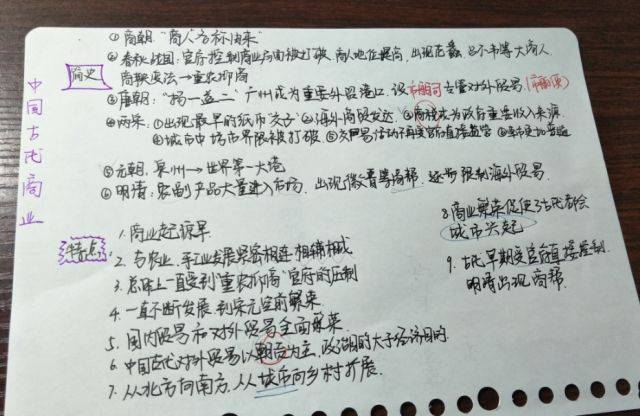 中国古代商业
简史
① 商朝:"商人"名称由来
② 春秋战国:官府控制商业局面被打破,商人地位提高,出现范蠡、吕不韦等大商人
商鞅变法→重农抑商
③ 唐朝:"扬一益二" 广州成为重要外贸港口,设市舶司主管对外贸易(市舶使)
④ 两宋:①出现最早的纸币"交子" ②海外商贸发达 ③商税成为政府重要收入来源
④城市中坊市界限被打破 ⑤交易活动不再受官府直接监管
⑤ 元朝:泉州→世界第一大港
⑥ 明清:农副产品大量进入市场,出现徽晋等商帮,逐步限制海外贸易
特点
1. 商业起源早
2. 与农业、手工业发展紧密相连,相辅相成
3. 总体上一直受到"重农抑商"官府的压制
4. 一直不断发展,到宋元空前繁荣
5. 国内贸易和对外贸易全面繁荣
6. 中国古代对外贸易以朝贡为主,政治目的大于经济目的
7. 从北方向南方,从城市向乡村扩展
8. 商业繁荣促使古代都会
城市兴起
9. 古代早期受官府直接控制
明清出现商帮